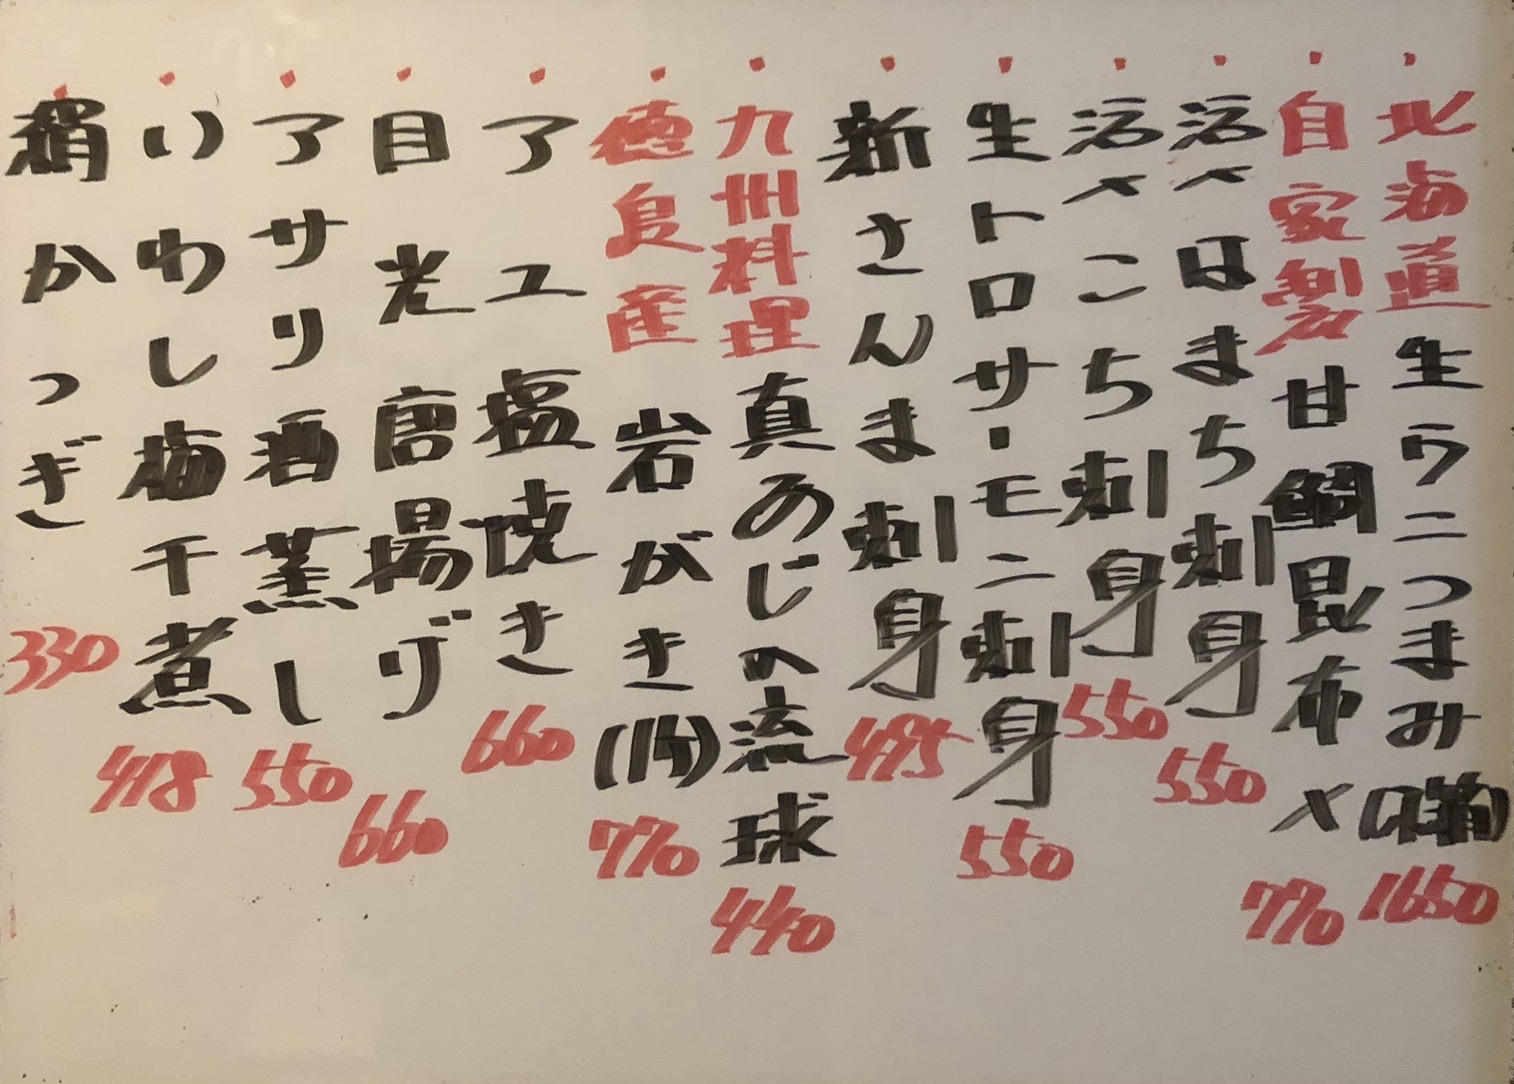 ・北海道生ウニつまみ 1650
・自家製甘鯛昆布〆 770
・活〆はまち刺身 550
・活〆こち刺身 550
・生トロサーモン刺身 550
・新さんま刺身 495
・九州料理真あじの流球 440
・徳島産岩がき(1ヶ) 770
・アユ塩焼き 660
・目光唐揚げ 660
・アサリ酒蒸し 550
・いわし梅干煮 418
・絹かつぎ 330